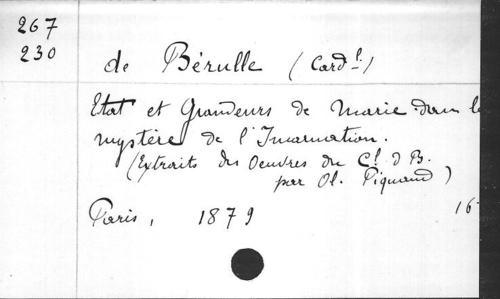 267
230
de Bérulle (Card.l)
Etat et Grandeurs de Marie dans le
mystère de l'Incarnation.
(Extraits des Oeuvres du C.l d B.
par Ol. Piquand)
Paris, 1879 16